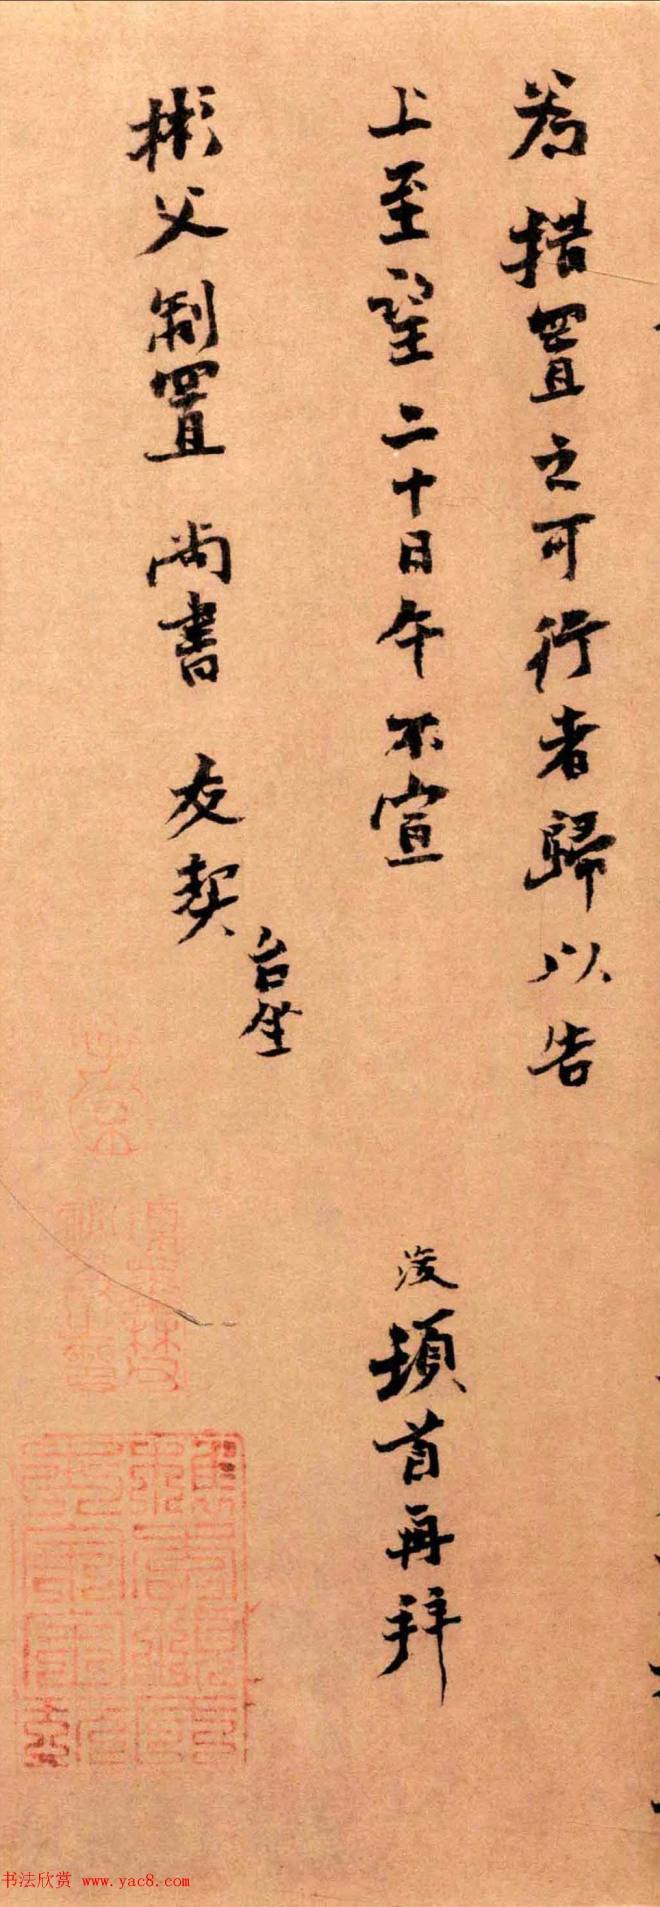 為措置之可行者歸以告
上至望二十日午不宣
浚頓首再拜
彬父制置 尚書 友契
台坐
书法欣赏 www.yac8.com